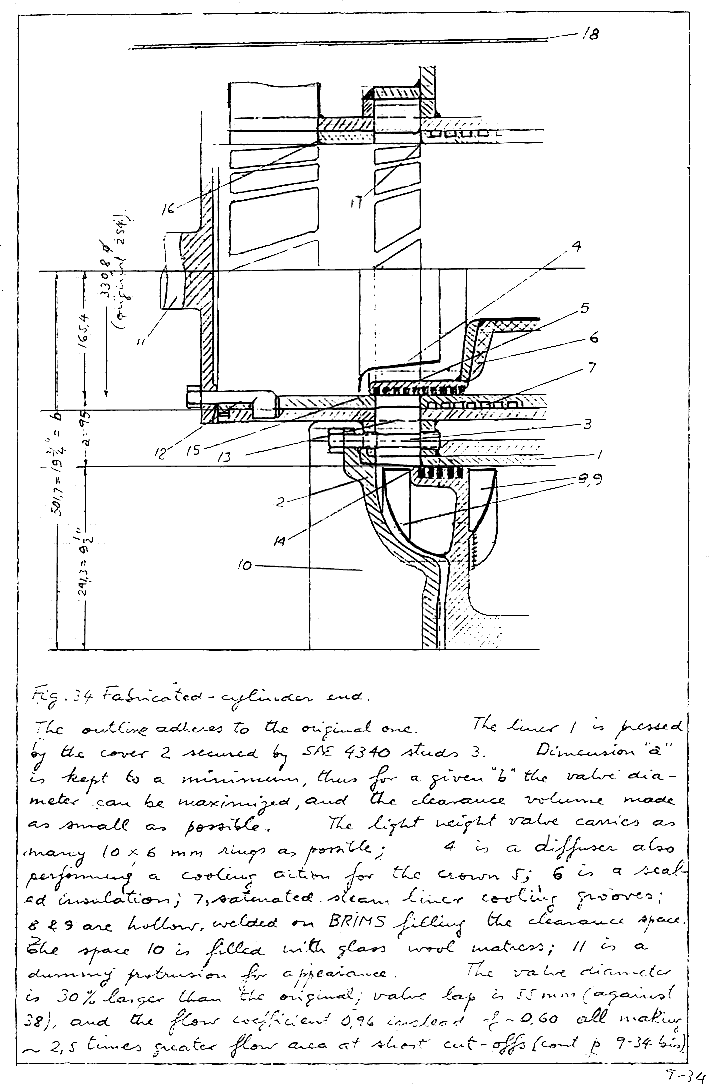 18
16
17
4
5
6
7
3
1
8,9
330,8 ϕ
(original 254)
165,4
11
a = 95
501,7 = 19 3/4" = b
241,3 = 9 1/2"
12
15
13
2
14
10
Fig. 34 Fabricated-cylinder end.
The outline adheres to the original one. The liner 1 is pressed
by the cover 2 secured by SAE 4340 studs 3. Dimension "a"
is kept to a minimum, thus for a given "b" the valve dia-
meter can be maximized, and the clearance volume made
as small as possible. The light weight valve carries as
many 10 x 6 mm rings as possible; 4 is a diffuser also
performing a cooling action for the crown 5; 6 is a seal-
ed insulation; 7, saturated steam liner cooling grooves;
8 & 9 are hollow, welded on BRIMS filling the clearance space.
The space 10 is filled with glass wool matress; 11 is a
dummy protrusion for appearance. The valve diameter
is 30% larger than the original; valve lap is 55 mm (against
38), and the flow coefficient 0,96 instead of ~0,60 all making
~ 2,5 times greater flow area at short cut-offs (cont p 9-34 bis)
9-34